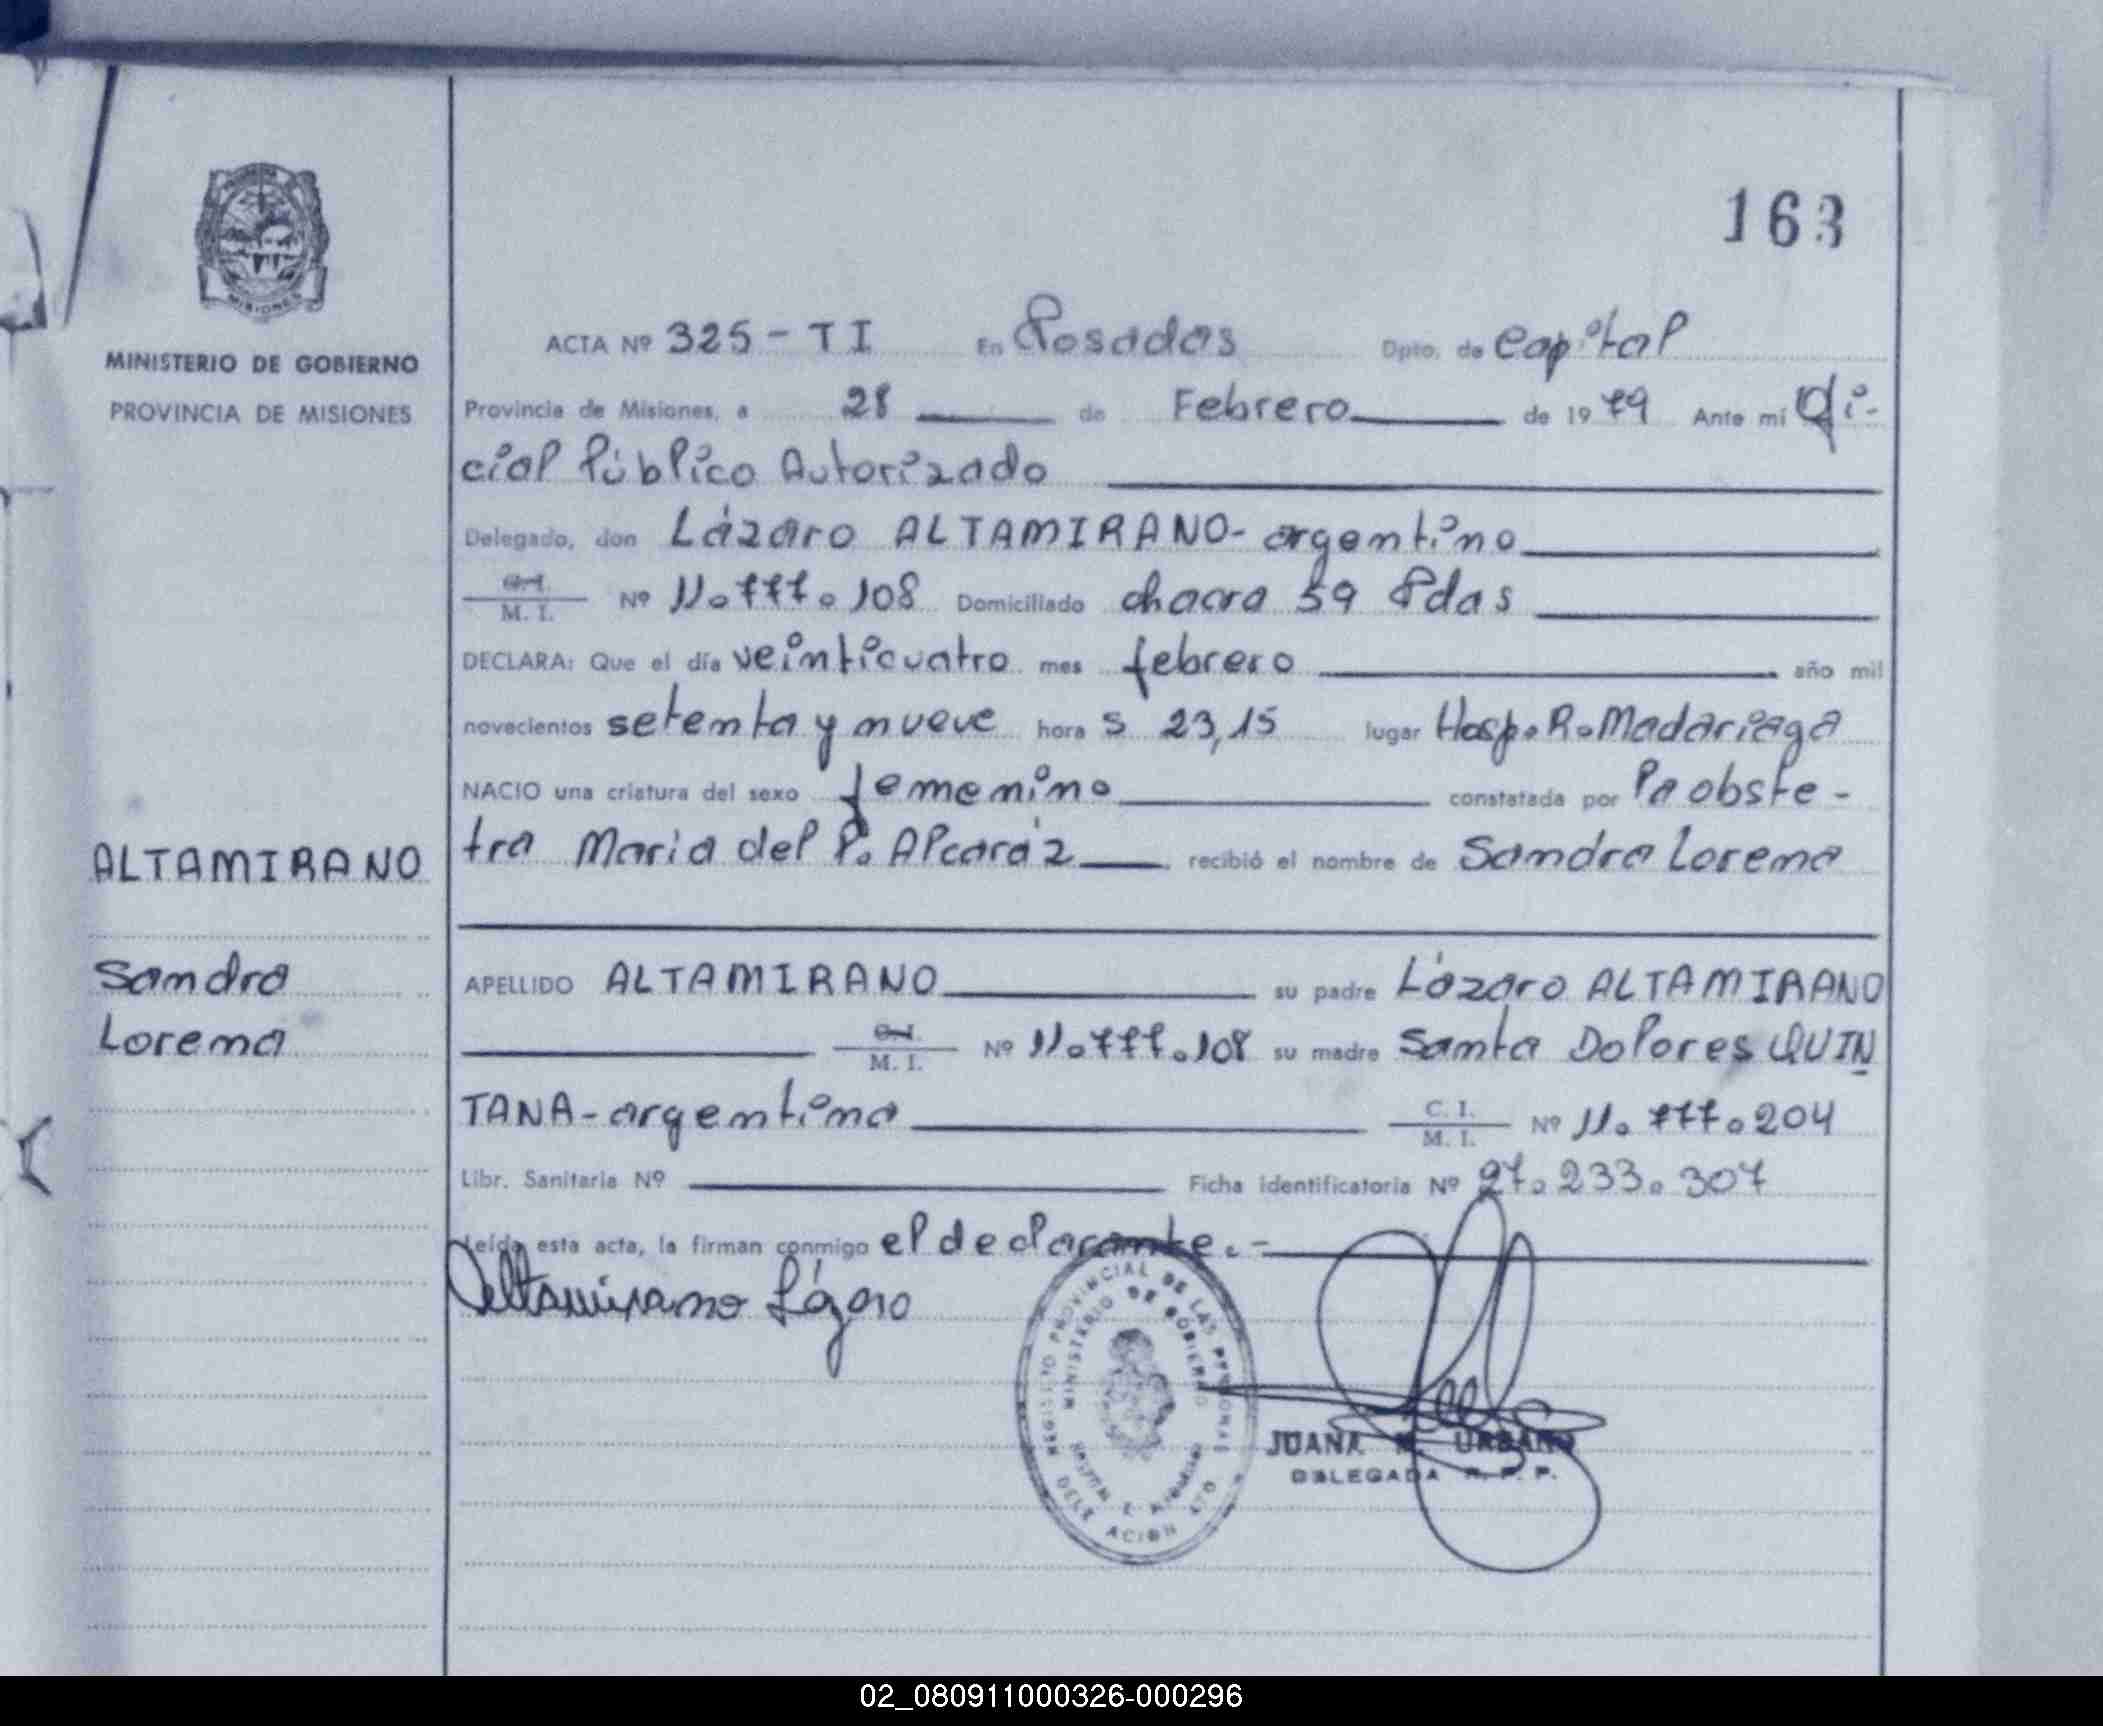 163
MISIONES
MINISTERIO DE GOBIERNO
PROVINCIA DE MISIONES
ALTAMIRANO
Sandra
Lorena
ACTA Nº 325 - TI En Posadas Dpto. de Capital
Provincia de Misiones, a 28 de Febrero de 1979 Ante mí Ofi-
cial Público Autorizado
Delegado, don Lázaro ALTAMIRANO - argentino
C.I. M. I. Nº 11.777.108 Domiciliado chacra 59 Pdas
DECLARA: Que el día veinticuatro mes febrero año mil
novecientos setenta y nueve hora s 23,15 lugar Hosp. R. Madariaga
NACIO una criatura del sexo femenino constatada por la obste-
tra Maria del P. Alcaráz recibió el nombre de Sandra Lorena
APELLIDO ALTAMIRANO su padre Lázaro ALTAMIRANO
C.I. M. I. Nº 11.777.108 su madre Santa Dolores QUIN
TANA - argentina C. I. M. I. Nº 11.777.204
Libr. Sanitaria Nº Ficha identificatoria Nº 27.233.307
Leída esta acta, la firman conmigo el declarante.-
Altamirano Lázaro
REGISTRO PROVINCIAL DE LAS PERSONAS
MINISTERIO DE GOBIERNO
JUANA URBANO
DELEGADA R. P. P.
02_080911000326-000296